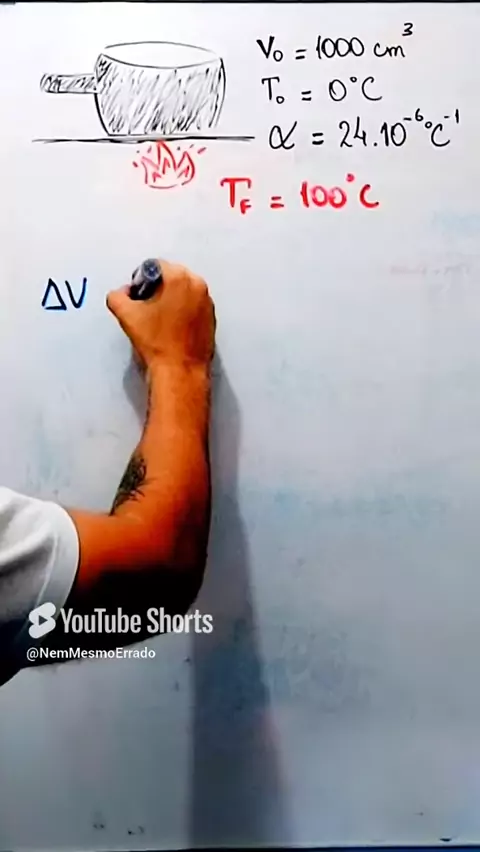 V₀ = 1000 cm³
T₀ = 0°C
α = 24.10⁻⁶ °C⁻¹
T_F = 100°C
ΔV
YouTube Shorts
@NemMesmoErrado